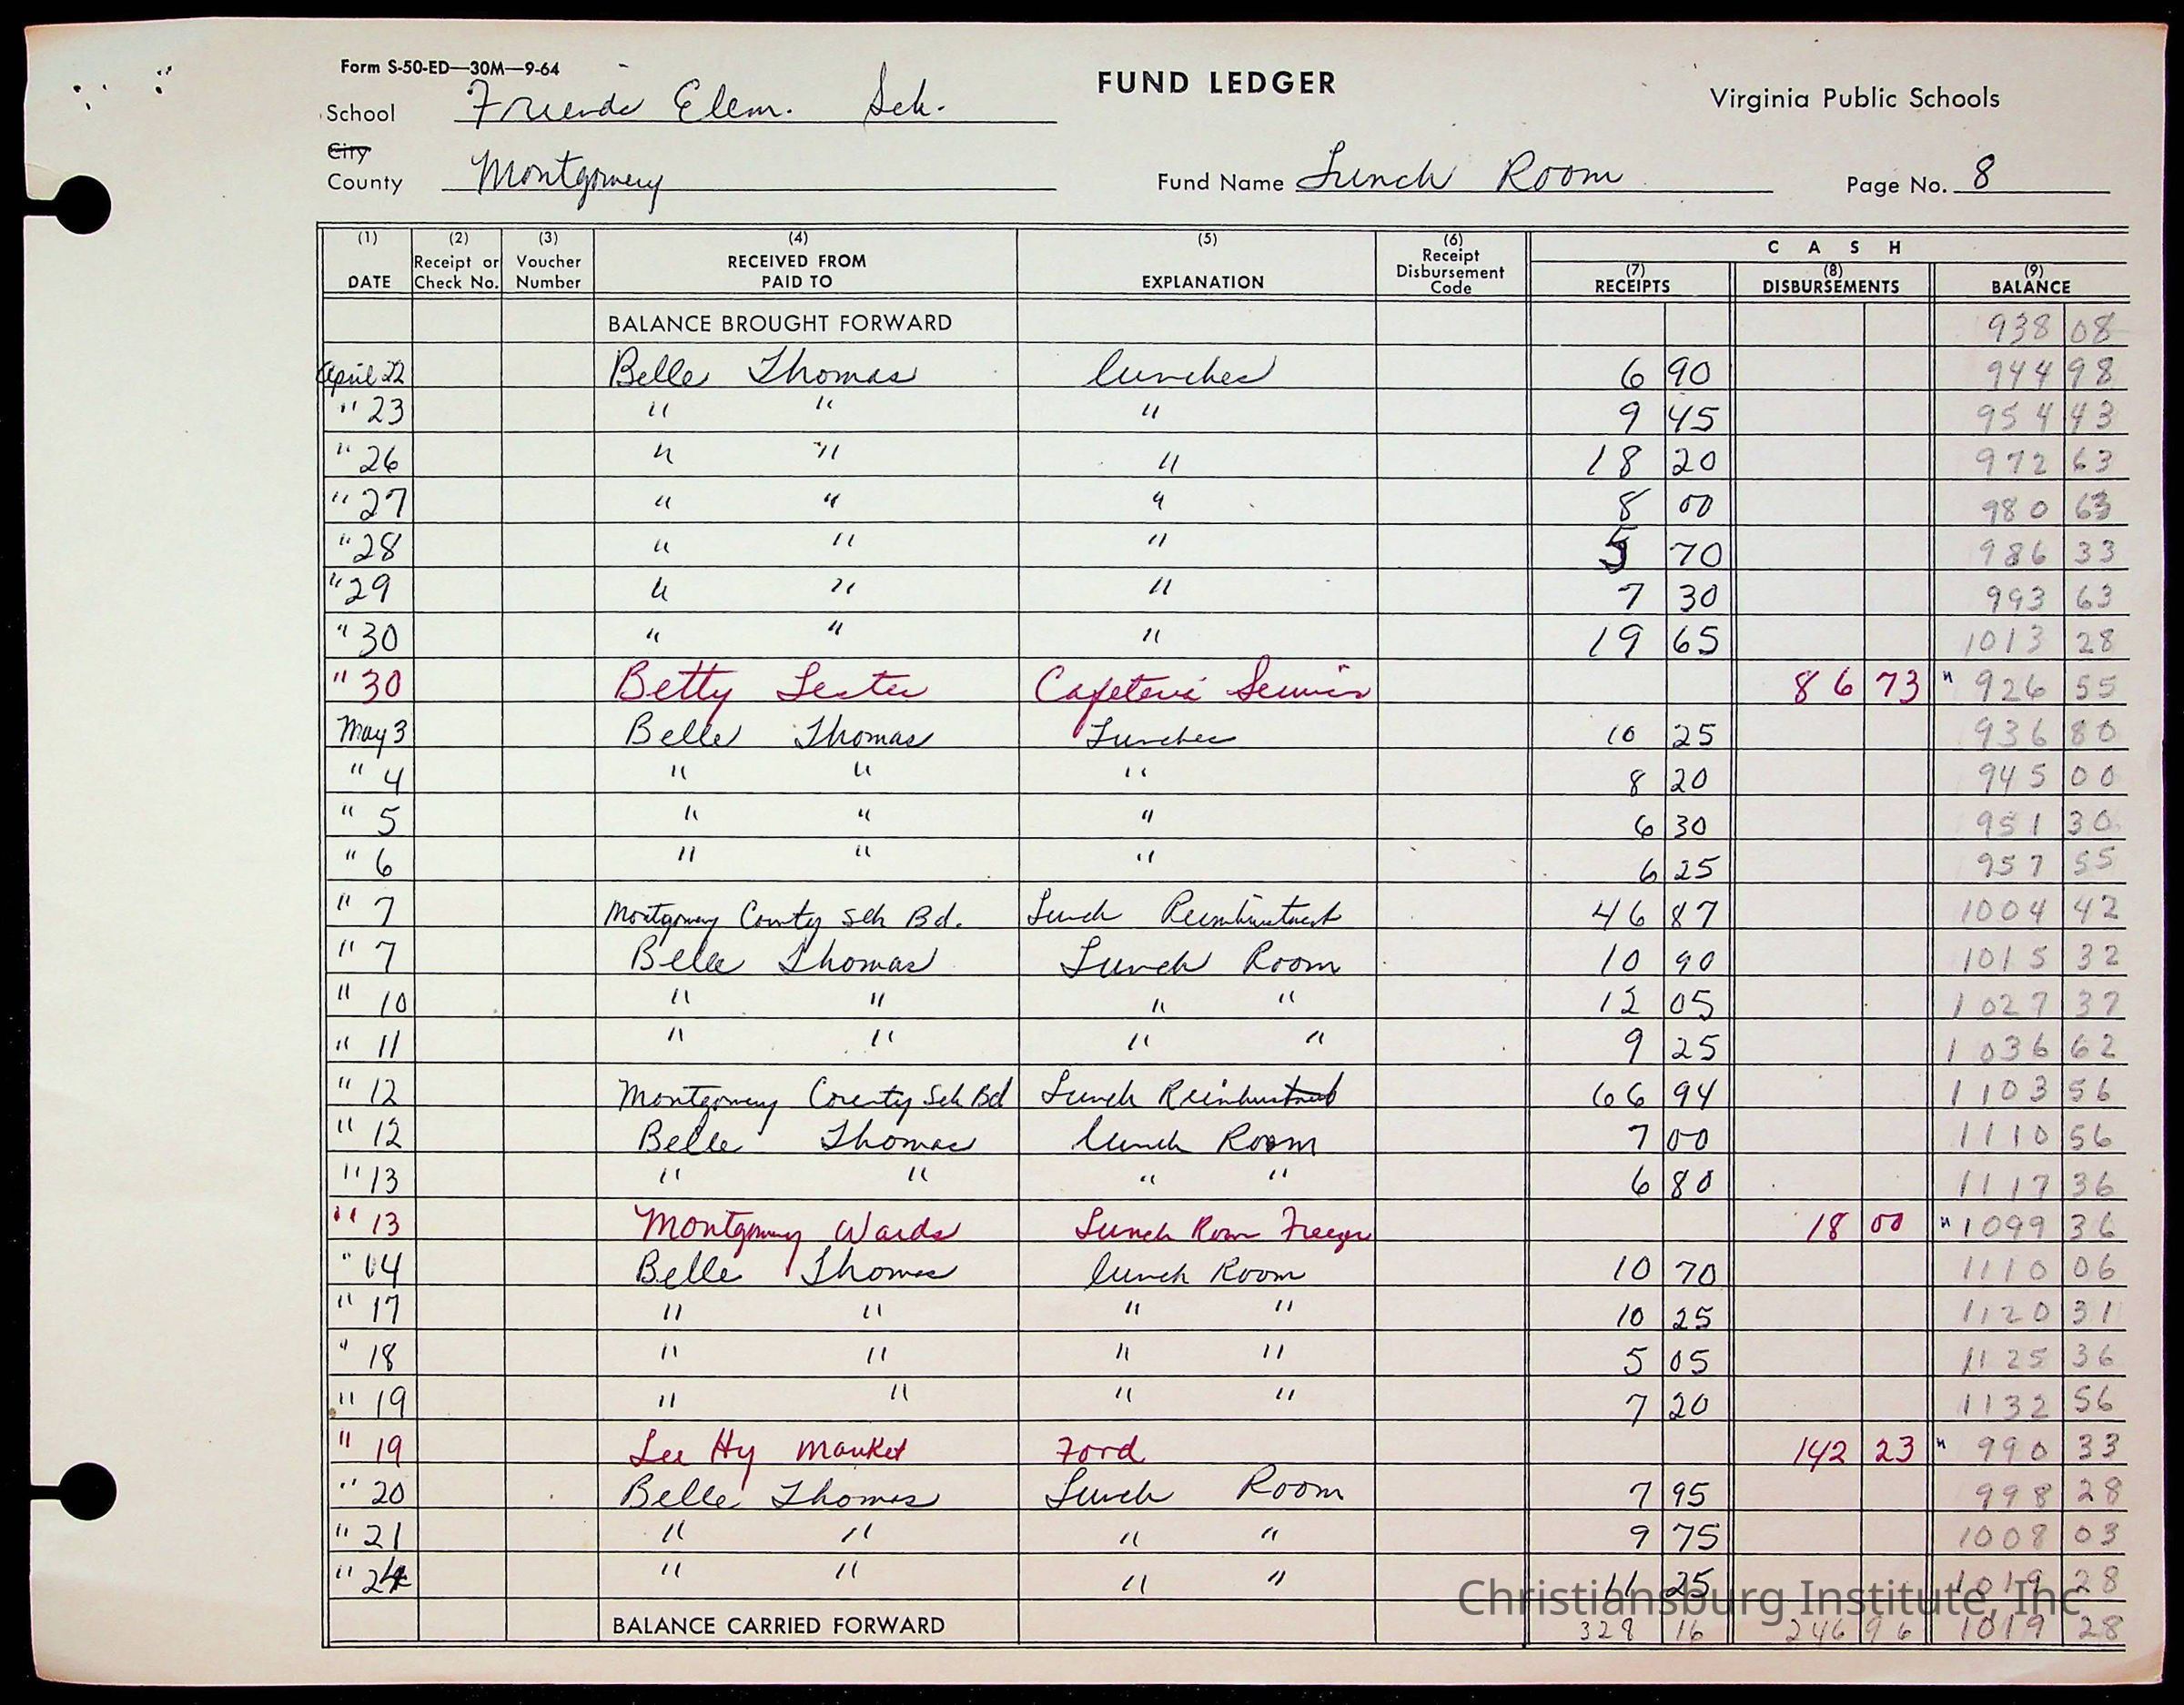 Form S-50-ED—30M—9-64
FUND LEDGER
Virginia Public Schools
School Friends Elem. Sch.
City
County Montgomery
Fund Name Lunch Room
Page No. 8
(1) (2) (3) (4) (5) (6) C A S H
DATE Receipt or Check No. Voucher Number RECEIVED FROM PAID TO EXPLANATION Receipt Disbursement Code (7) RECEIPTS (8) DISBURSEMENTS (9) BALANCE
BALANCE BROUGHT FORWARD 938 08
April 22 Belle Thomas lunches 6 90 944 98
" 23 " " " 9 45 954 43
" 26 " " " 18 20 972 63
" 27 " " " 8 00 980 63
" 28 " " " 5 70 986 33
" 29 " " " 7 30 993 63
" 30 " " " 19 65 1013 28
" 30 Betty Lester Cafeteria 86 73 " 926 55
May 3 Belle Thomas Lunches 10 25 936 80
" 4 " " " 8 20 945 00
" 5 " " " 6 30 951 30
" 6 " " " 6 25 957 55
" 7 Montgomery County Sch Bd. Lunch 46 87 1004 42
" 7 Belle Thomas Lunch Room 10 90 1015 32
" 10 " " " " 12 05 1027 37
" 11 " " " " 9 25 1036 62
" 12 Montgomery County Sch Bd Lunch 66 94 1103 56
" 12 Belle Thomas lunch Room 7 00 1110 56
" 13 " " " " 6 80 1117 36
" 13 Montgomery Wards Lunch Room Freezer 18 00 " 1099 36
" 14 Belle Thomas lunch Room 10 70 1110 06
" 17 " " " " 10 25 1120 31
" 18 " " " " 5 05 1125 36
" 19 " " " " 7 20 1132 56
" 19 Lee Hy Market Food 142 23 " 990 33
" 20 Belle Thomas Lunch Room 7 95 998 28
" 21 " " " " 9 75 1008 03
" 24 " " " " 11 25 1019 28
Christiansburg Institute, Inc
BALANCE CARRIED FORWARD 328 16 246 96 1019 28